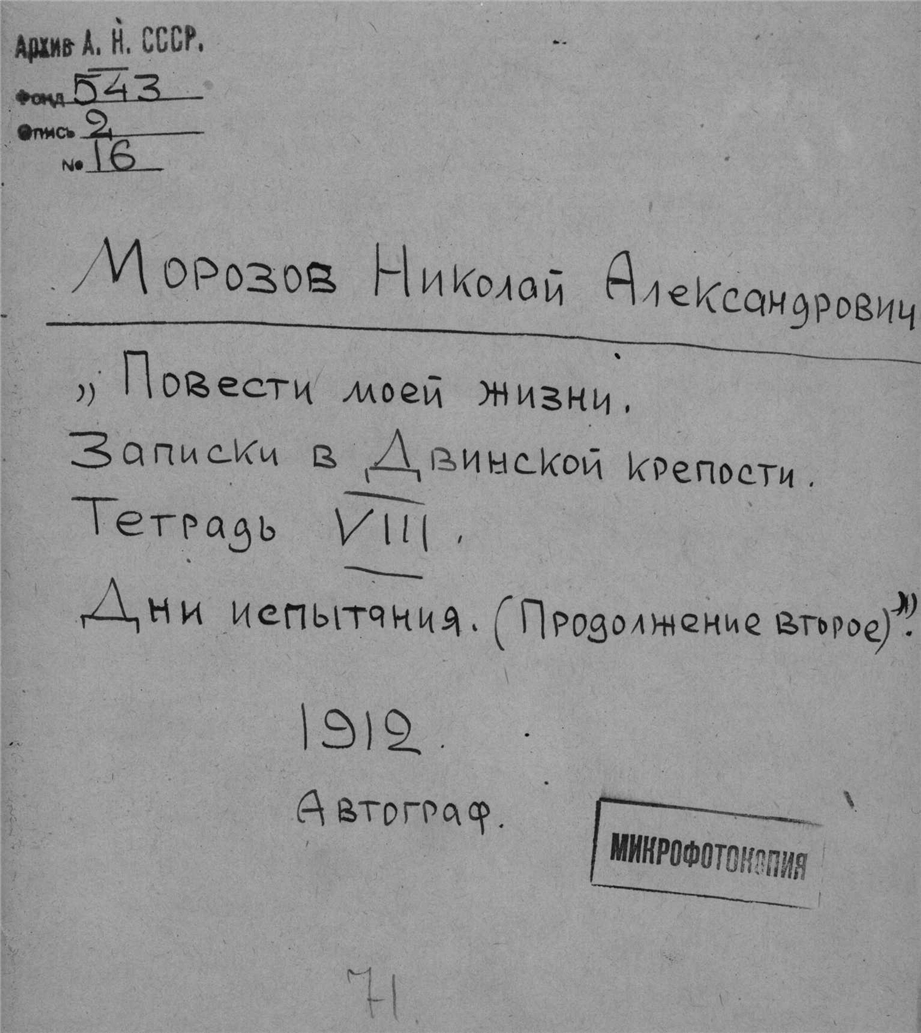 Архив А. Н. СССР.
Фонд 543
Опись 2
№ 16
Морозов Николай Александрович
„Повести моей жизни.
Записки в Двинской крепости.
Тетрадь VIII.
Дни испытания. (Продолжение второе)".
1912.
Автограф.
МИКРОФОТОКОПИЯ
71